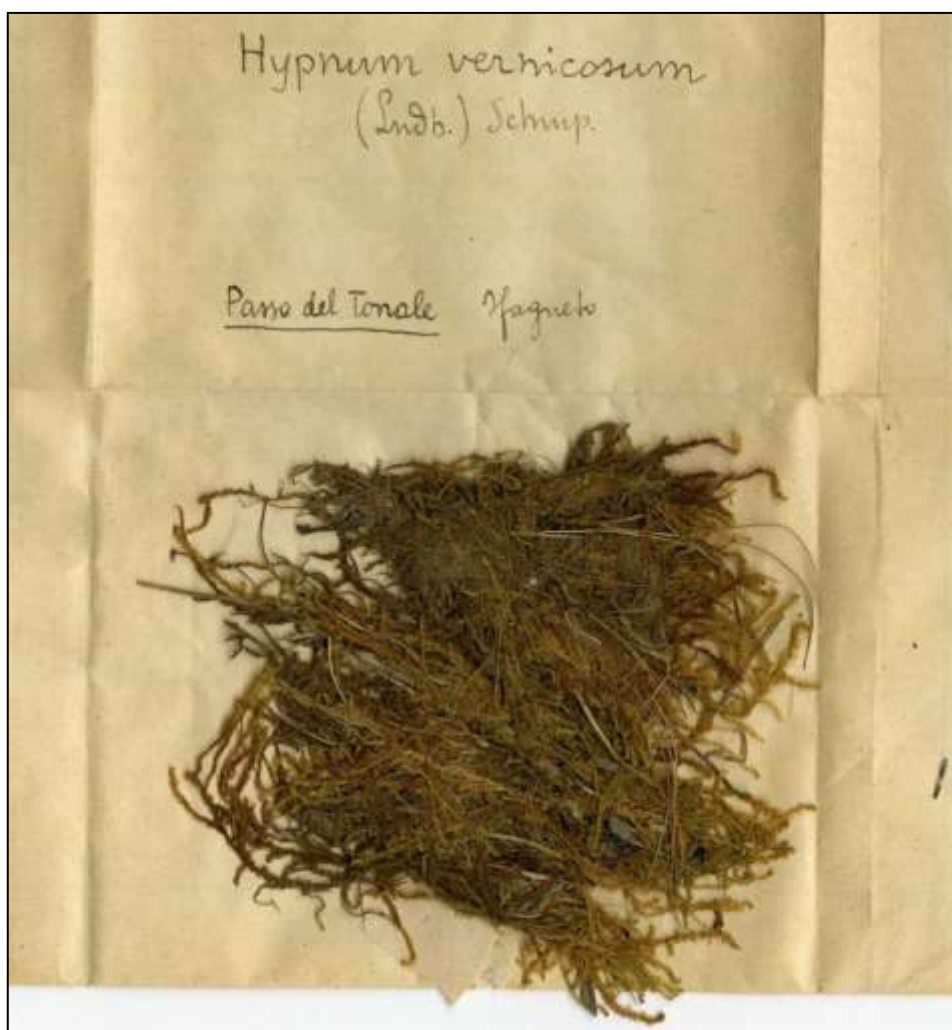 Hypnum vernicosum
(Lndb.) Schup.
Passo del Tonale